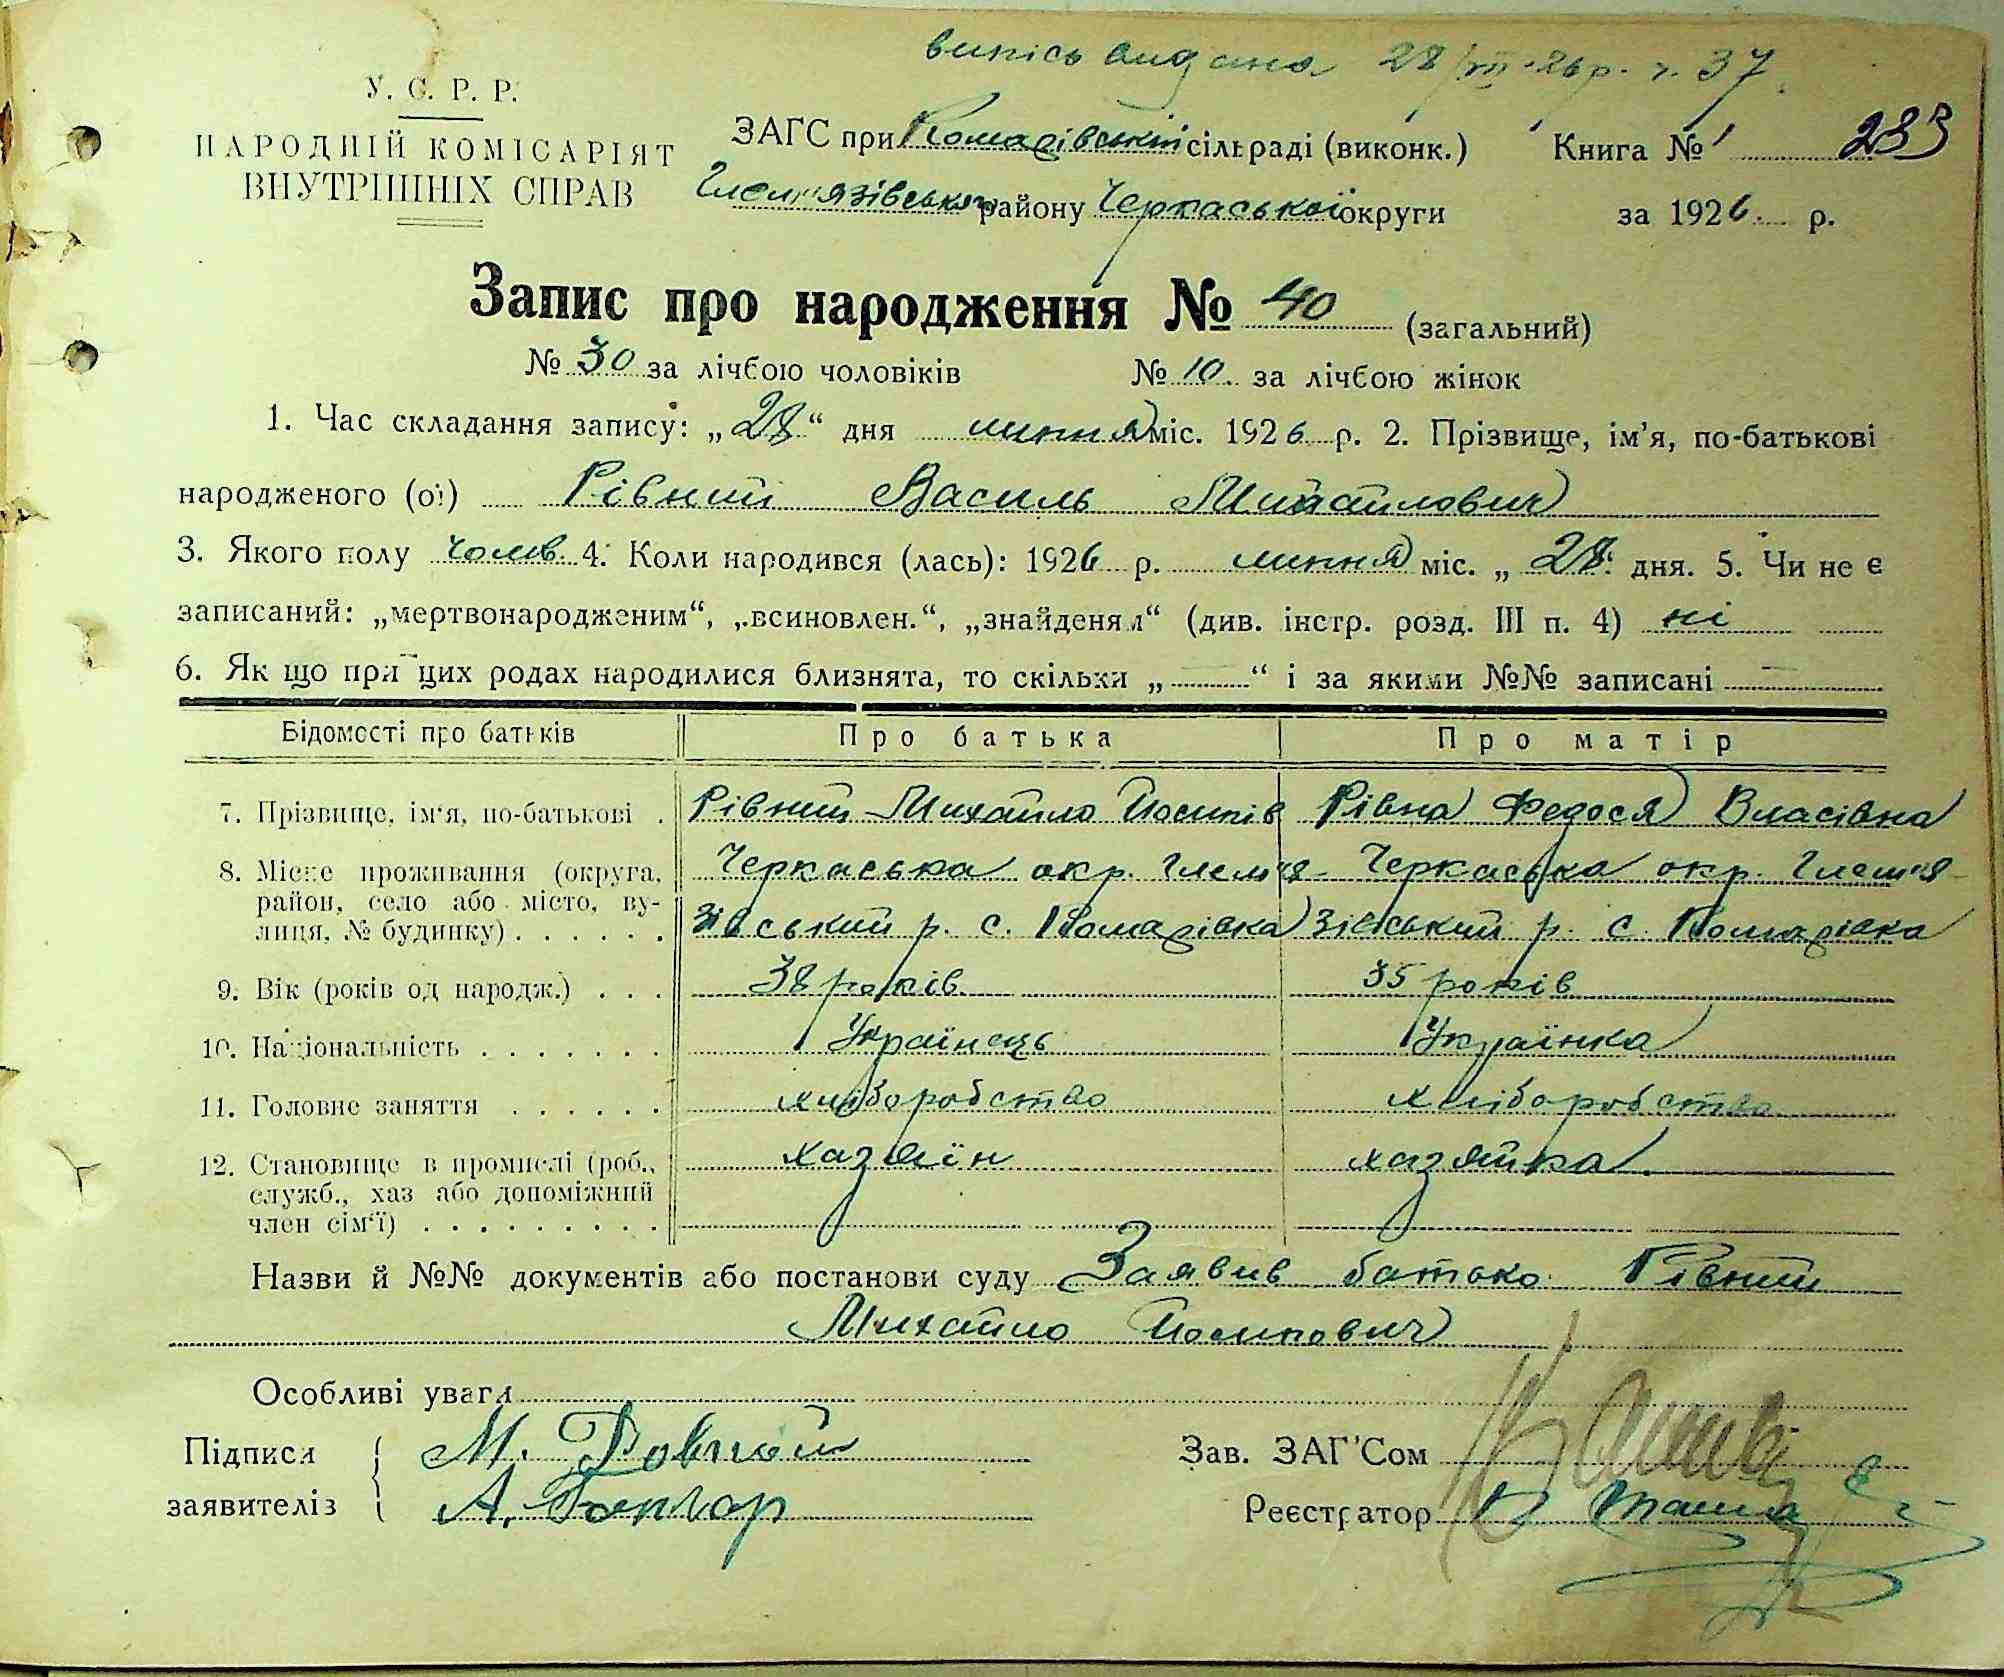 випісь видана 28/VII-26р. ч. 37.
У. С. Р. Р.
НАРОДНІЙ КОМІСАРІЯТ
ВНУТРІШНІХ СПРАВ
ЗАГС при Комарівській сільраді (виконк.)
Гельм'язівського району Черкаської округи
Книга № 1 233
за 1926 р.
Запис про народження № 40 (загальний)
№ 30 за лічбою чоловіків № 10. за лічбою жінок
1. Час складання запису: „28“ дня липня міс. 1926 р. 2. Прізвище, ім’я, по-батькові
народженого (ої) Рівний Василь Михайлович
3. Якого полу чолов. 4. Коли народився (лась): 1926 р. липня міс. „28“ дня. 5. Чи не є
записаний: „мертвонародженим“, „всиновлен.“, „знайденям“ (див. інстр. розд. III п. 4) ні
6. Як що при цих родах народилися близнята, то скільки „ — “ і за якими №№ записані —
Відомості про батьків Про батька Про матір
7. Прізвище, ім‘я, по-батькові . Рівний Михайло Йосипів Рівна Федося Власівна
8. Місце проживання (округа, Черкаська окр. Глем'я- Черкаська окр. Глем'я-
район, село або місто, ву- зівський р. с. Комарівка зівський р. с. Комарівка
лиця, № будинку) . . . . . .
9. Вік (років од народж.) . . . 38 років 35 років
10. Національність . . . . . . . Українець Українка
11. Головне заняття . . . . . . хліборобство хліборобство
12. Становище в промислі (роб., хазяїн хазяйка
служб., хаз або допоміжний
член сім‘ї) . . . . . . . . .
Назви й №№ документів або постанови суду Заявив батько Рівний
Михайло Йосипович
Особливі уваги
Підписи М. Ровной Зав. ЗАГ’Сом
заявителів А. Реєстратор